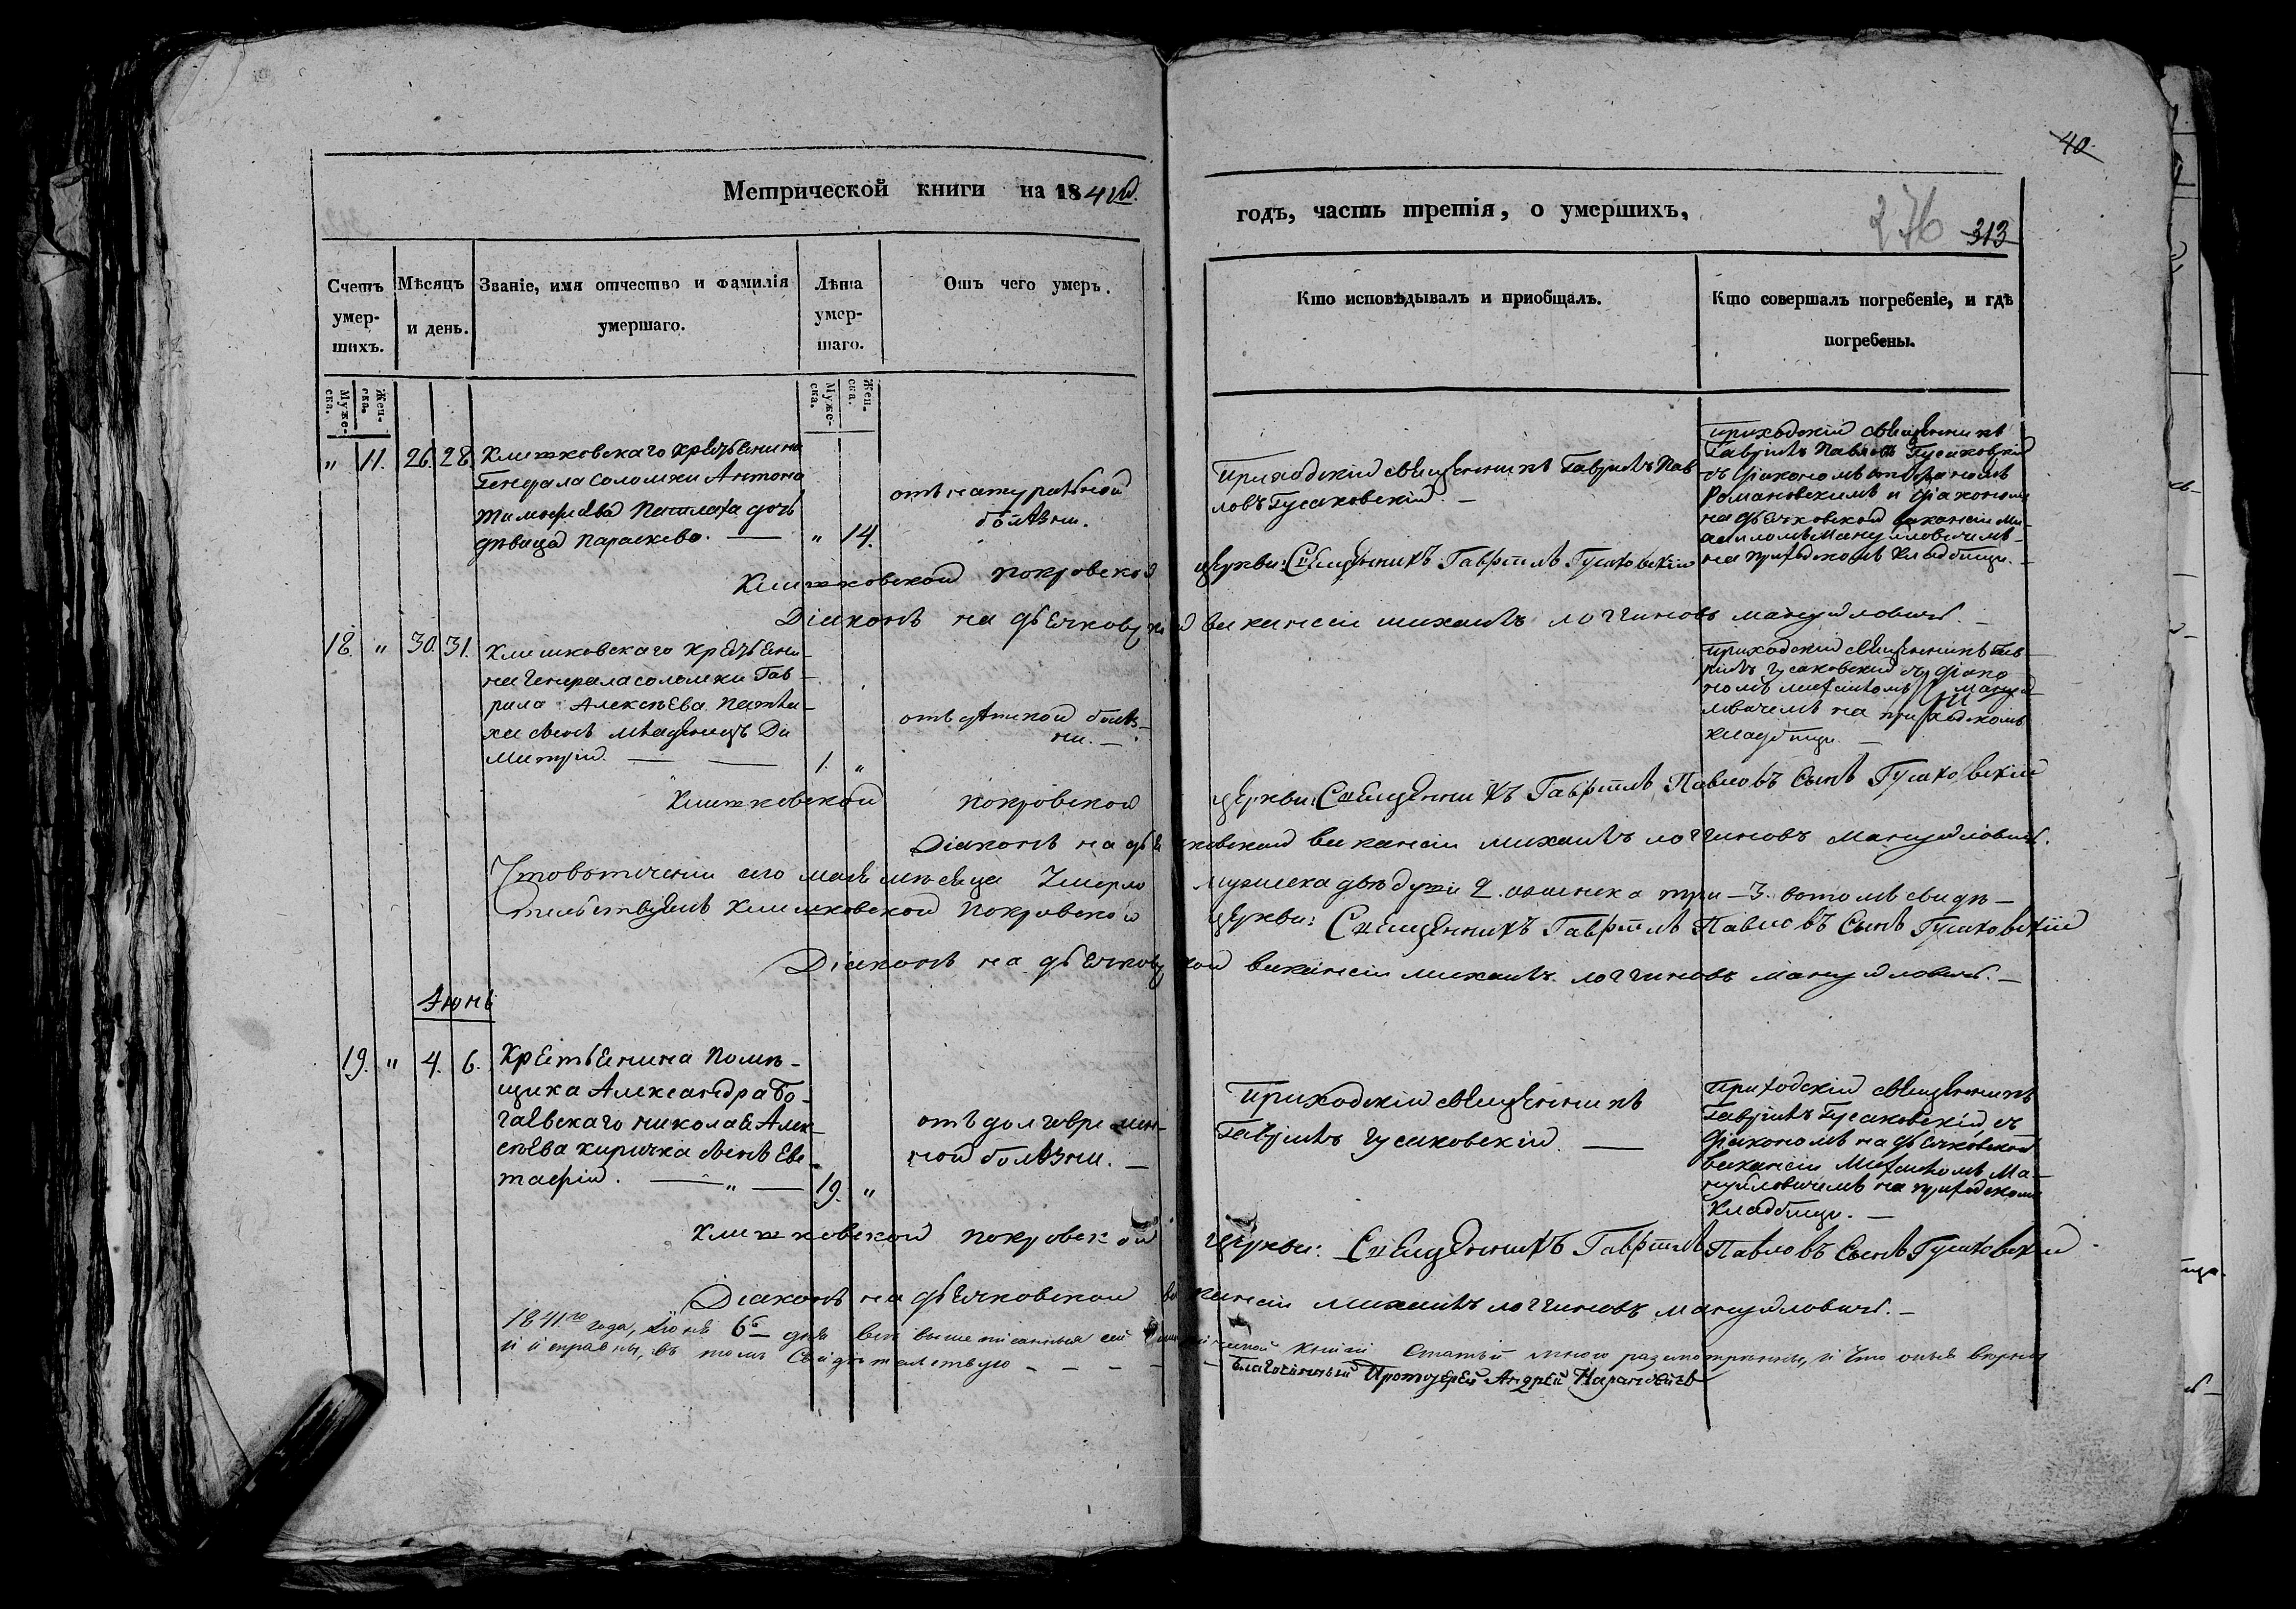 40
Метрической книги на 1841й.
годъ, часть третія, о умершихъ,
276 313
Счетъ умер-шихъ.
Мѣсяцъ и день.
Званіе, имя отчество и фамилія умершаго.
Лѣта умер-шаго.
Отъ чего умеръ.
Кто исповѣдывалъ и приобщалъ.
Кто совершалъ погребеніе, и гдѣ погребены.
Муже-ска.
Жен-ска.
Муже-ска.
Жен-ска.
" 11. 26. 28.
Клишковскаго
Генерала Соломки Антона
дочь
дѣвица Параскева. — " 14.
отъ натуральной
болѣзни.
Приходскій священникъ Гавріилъ Пав
ловъ Гусаковскій. —
Приходскій священникъ
Гавріилъ Павловъ Гусаковскій
съ діакономъ
Романовскимъ и діакономъ
на дьячковской вакансіи Ми-
хаиломъ Мануйловичемъ
на приходскомъ кладбищи. —
Клишковской Покровской церкви: Священникъ Гавріилъ Гусаковскій
Діаконъ на дьячковской вакансіи Михаилъ Логгиновъ Мануйловичъ. —
18. " 30. 31.
Клишковскаго
на Генерала Соломки Гав-
рила Алексѣева
сынъ младенецъ Ди
митрій. — — 1. "
отъ дѣтской болѣз-
ни. —
Приходскій священникъ Гав
ріилъ Гусаковскій съ діако
номъ Михаиломъ Мануй
ловичемъ на приходскомъ
кладбищи. —
Клишковской Покровской церкви: Священникъ Гавріилъ Павловъ Сынъ Гусаковскій
Діаконъ на дьячковской вакансіи Михаилъ Логгиновъ Мануйловичъ.
Что въ теченіи сего маія мѣсяца умерло мужеска двѣ души 2. а женска три — 3. въ томъ свидѣ —
тельствуемъ Клишковской Покровской церкви: Священникъ Гавріилъ Павловъ Сынъ Гусаковскій
Діаконъ на дьячковской вакансіи Михаилъ Логгиновъ Мануйловичъ. —
Іюнь
19. " 4. 6.
Крестьянина помѣ-
щика Александра Бо-
гаевскаго Николая Алек-
сѣева Киричка сынъ Евс
тафій. — " — 19. "
отъ долговремен-
ной болѣзни. —
Приходскій священникъ
Гавріилъ Гусаковскій. —
Приходскій священникъ
Гавріилъ Гусаковскій съ
діакономъ на дьячковской
вакансіи Михаиломъ Ма-
нуйловичемъ на приходскомъ
кладбищи. —
Клишковской Покровской церкви: Священникъ Гавріилъ Павловъ Сынъ Гусаковскій
Діаконъ на дьячковской вакансіи Михаилъ Логгиновъ Мануйловичъ. —
1841го года, Іюня 6го дня всѣ выше писанныя сей книги статьи мною разсмотрѣнны, и что оныя вѣрны
и исправны, въ томъ свидѣтельствую — — — — —
Благочинный Протоіерей Андрей Нарановичъ